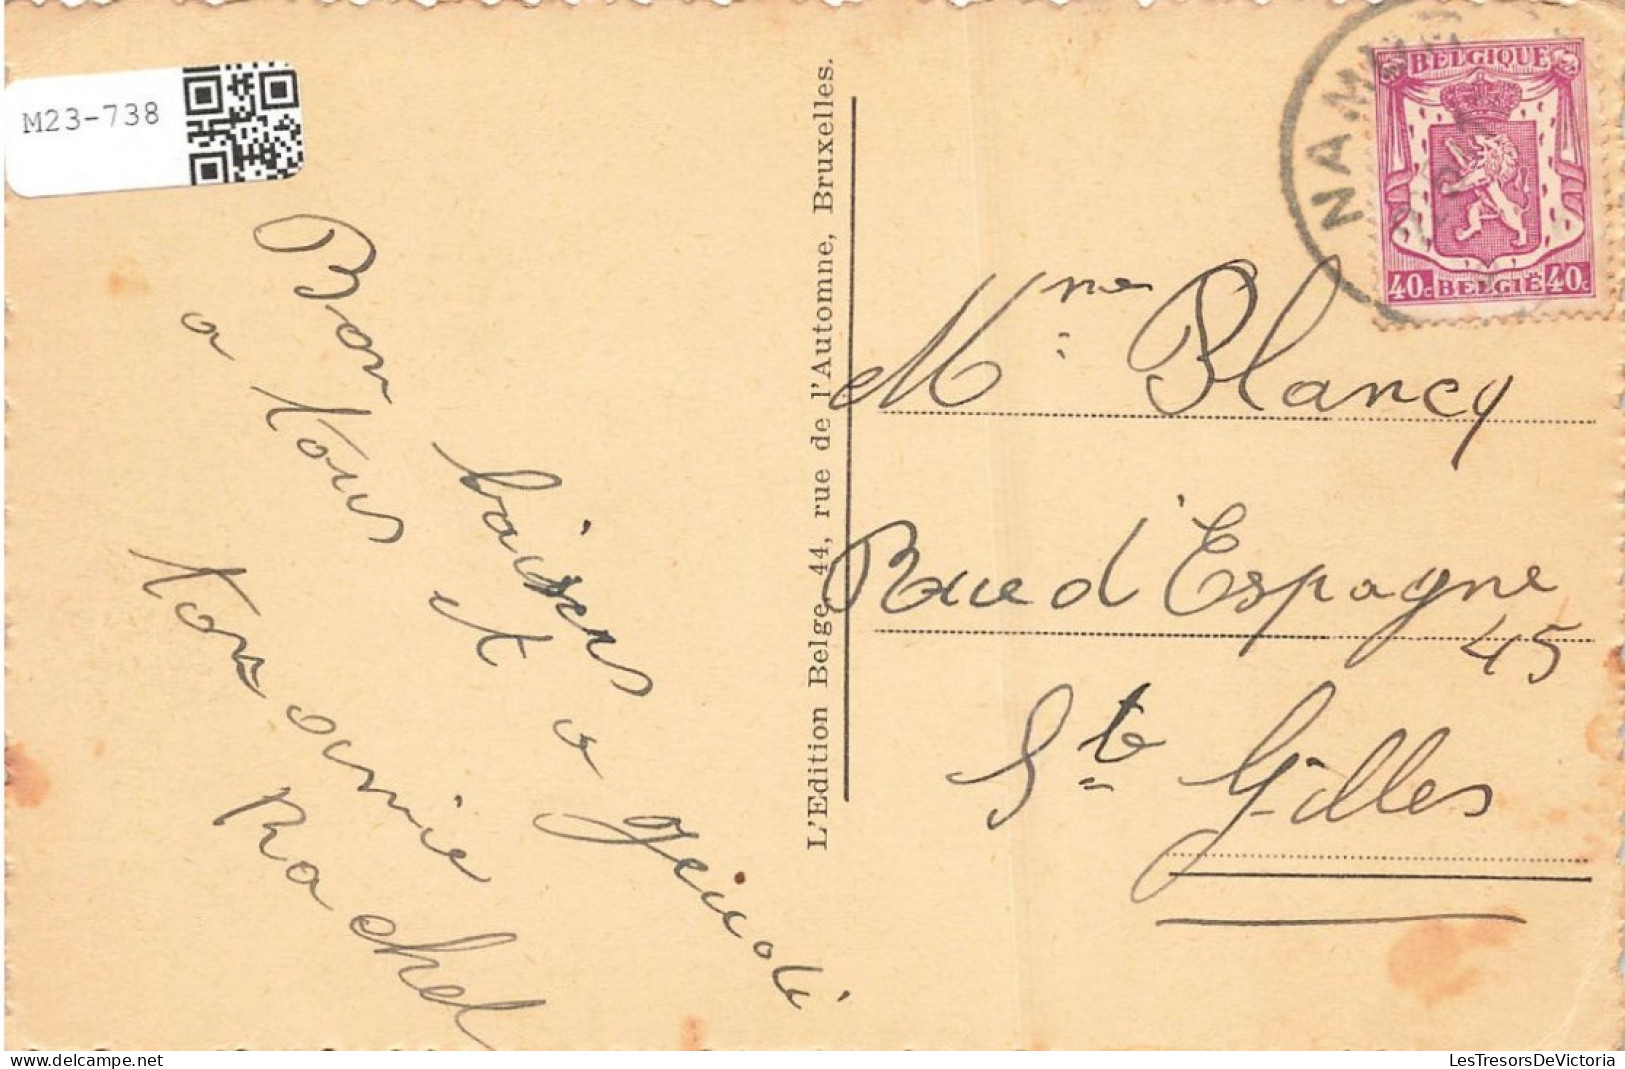 M23-738
Bon baisers
a tous et a
ton amie
Rachel
L'Edition Belge, 44, rue de l'Automne, Bruxelles.
NAMUR
BELGIQUE
40c BELGIË 40c
Mme Blancq
Rue d'Espagne
45
St Gilles
LesTresorsDeVictoria